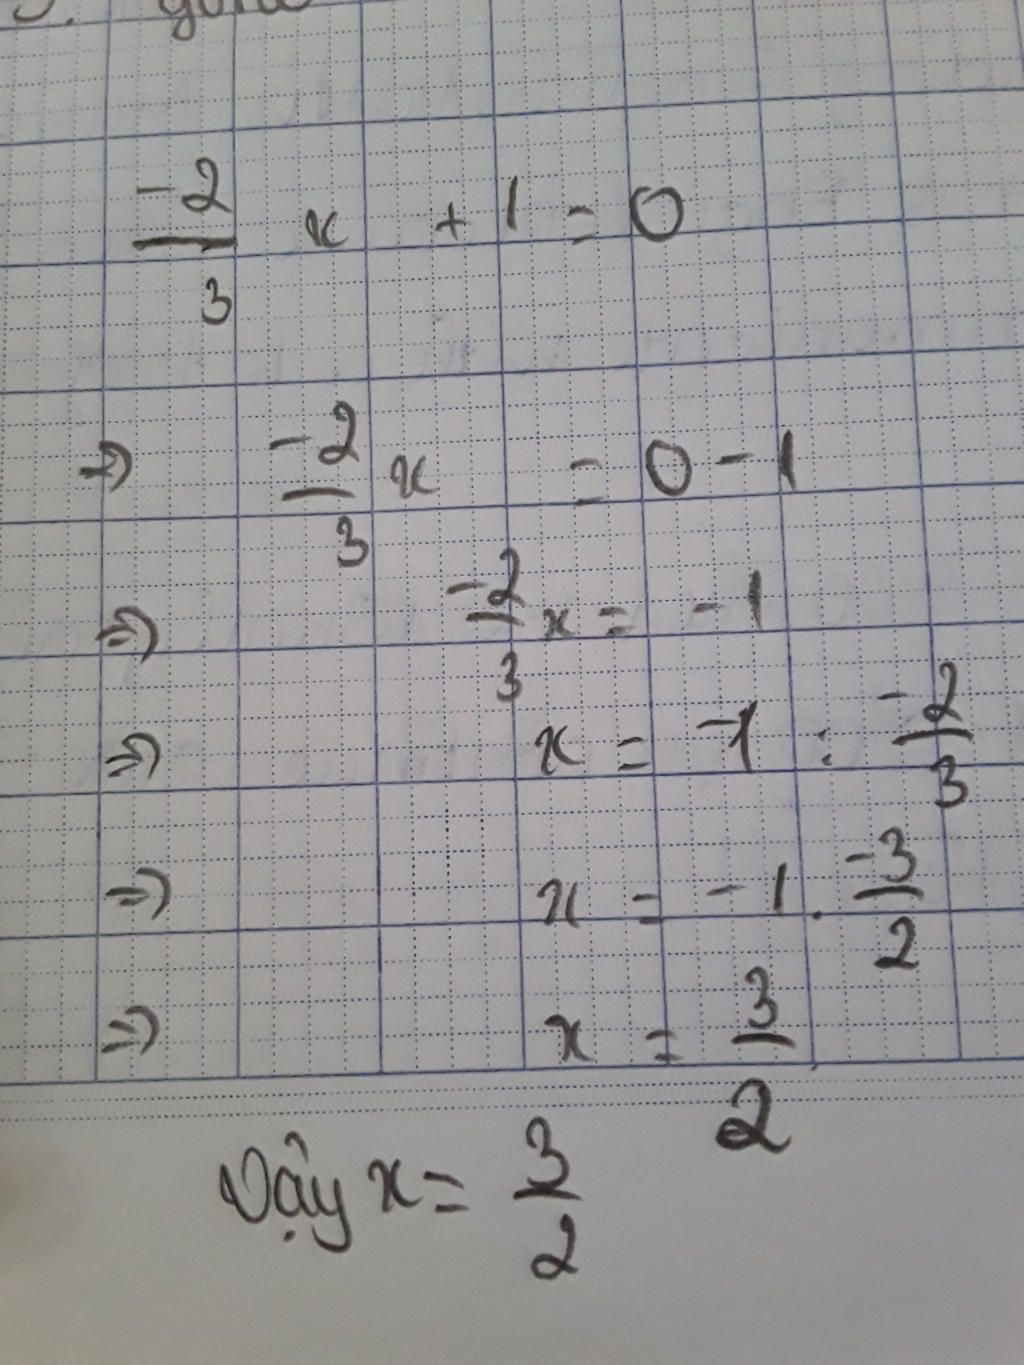 -2/3 x + 1 = 0
=> -2/3 x = 0 - 1
=> -2/3 x = -1
=> x = -1 : -2/3
=> x = -1 . -3/2
=> x = 3/2
Vậy x = 3/2